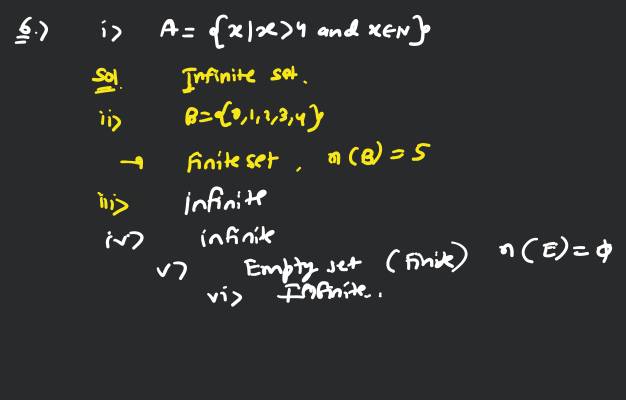 6.) i> A = {x|x>4 and x∈N}
Sol Infinite set.
ii> B={0,1,2,3,4}
→ finite set, n(B) = 5
iii> infinite
iv> infinite
v> Empty set (finite) n(E) = φ
vi> Infinite.